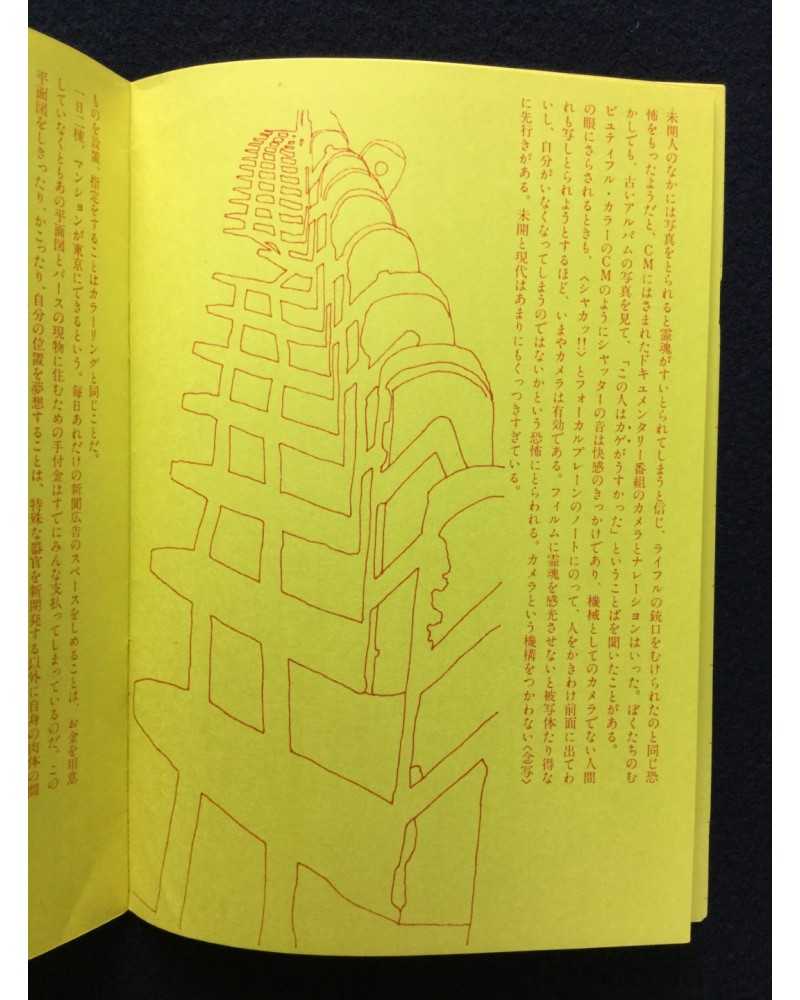 未開人のなかには写真をとられると霊魂がすいとられてしまうと信じ、ライフルの銃口をむけられたのと同じ恐
怖をもったようだと、CMにはさまれたドキュメンタリー番組のカメラとナレーションはいった。ぼくたちのむ
かしでも、古いアルバムの写真を見て、「この人はカゲがうすかった」ということばを聞いたことがある。
ビュティフル・カラーのCMのようにシャッターの音は快感のきっかけであり、機械としてのカメラでない人間
の眼にさらされるときも、〈シャカッ!!〉とフォーカルプレーンのノートにのって、人をかきわけ前面に出てわ
れも写しとられようとするほど、いまやカメラは有効である。フィルムに霊魂を感光させないと被写体たり得な
いし、自分がいなくなってしまうのではないかという恐怖にとらわれる。カメラという機構をつかわない〈念写〉
に先行きがある。未開と現代はあまりにもくっつきすぎている。
ものを設置、指定をすることはカラーリングと同じことだ。
一日二棟、マンションが東京にできるという。毎日あれだけの新聞広告のスペースをしめることは、お金を用意
していなくともあの平面図とパースの現物に住むための手付金はすでにみんな支払ってしまっているのだ。この
平面図をしきったり、かこったり、自分の位置を夢想することは、特殊な器官を新開発する以外に自身の肉体の